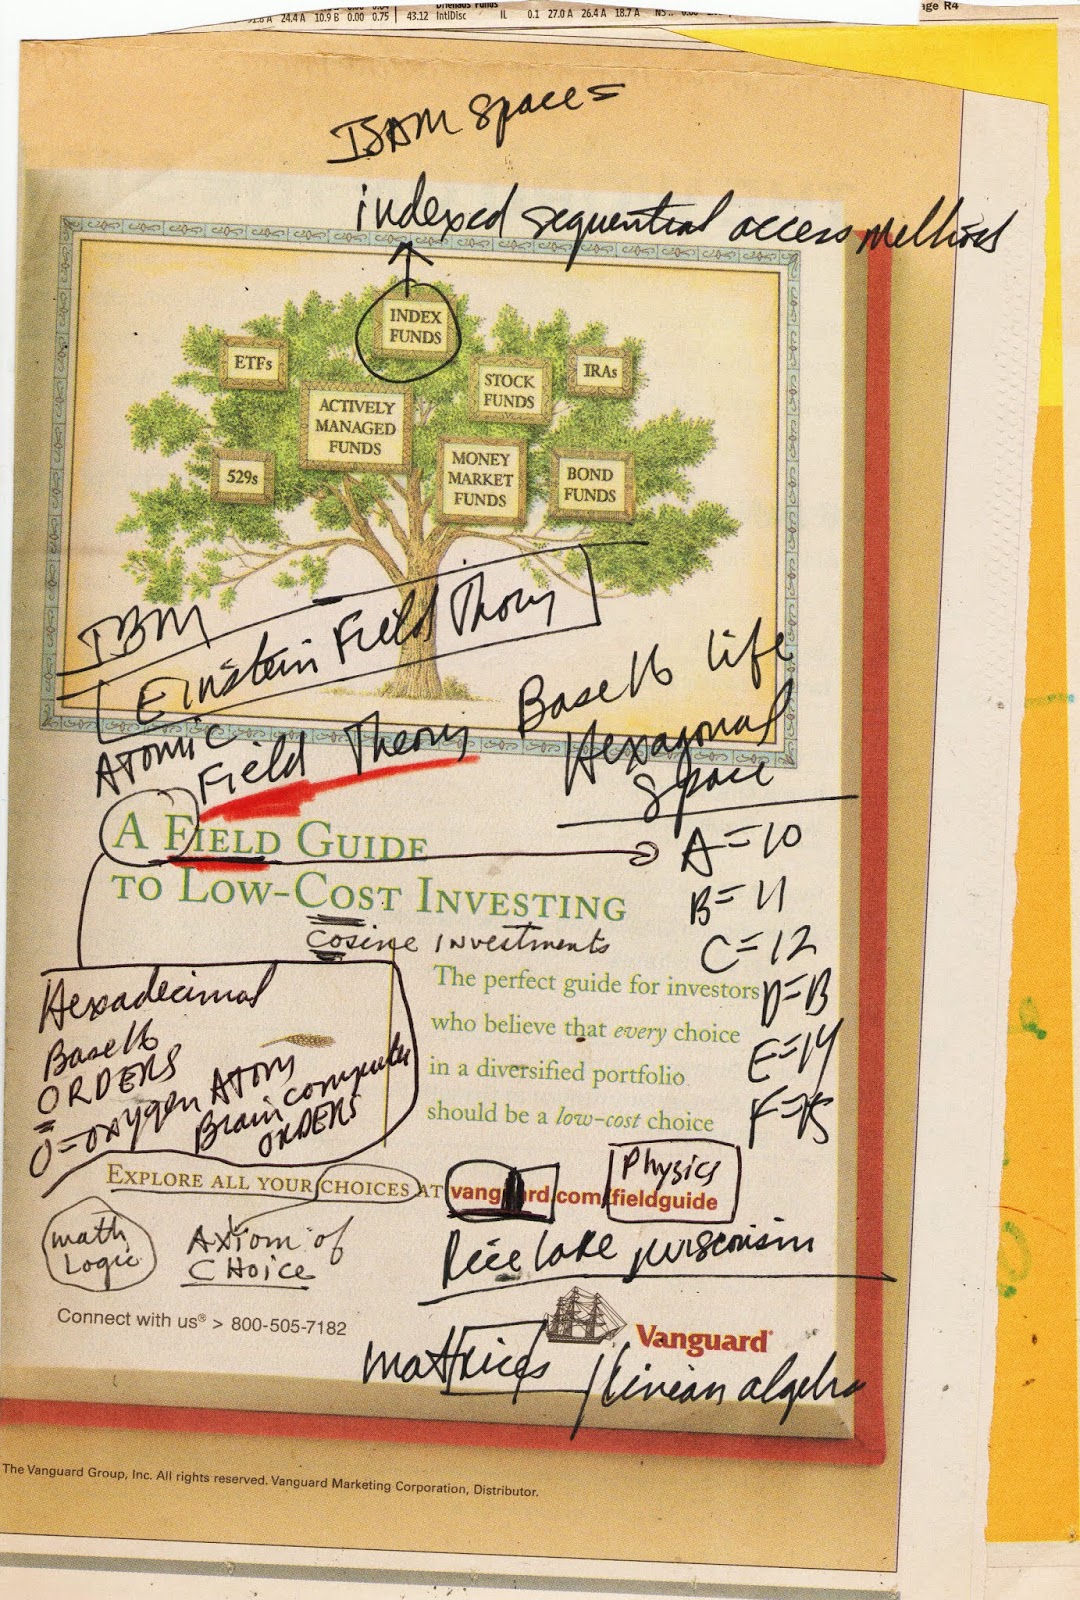 24.4 A 10.9 B 0.00 0.75 43.12 IntlDisc IL 0.1 27.0 A 26.4 A 18.7 A
age R4
ISAM Space =
indexed sequential access methods
INDEX
FUNDS
ETFs
STOCK
FUNDS
IRAs
ACTIVELY
MANAGED
FUNDS
529s
MONEY
MARKET
FUNDS
BOND
FUNDS
IBM
Einstein Field Theory
Atomic
Field Theory
Base 16 life
Hexagonal
Space
A FIELD GUIDE
TO LOW-COST INVESTING
A=10
B=11
C=12
D=B
E=14
F=15
cosine investments
The perfect guide for investors
who believe that every choice
in a diversified portfolio
should be a low-cost choice
Hexadecimal
Base 16
ORDERS
O=oxygen Atom
Brain computer
ORDERS
EXPLORE ALL YOUR CHOICES AT vanguard.com/fieldguide
Physics
math
Logic
Axiom of
CHoice
Rice Lake, Wisconsin
Connect with us® > 800-505-7182
Vanguard®
matrices / linear algebra
The Vanguard Group, Inc. All rights reserved. Vanguard Marketing Corporation, Distributor.